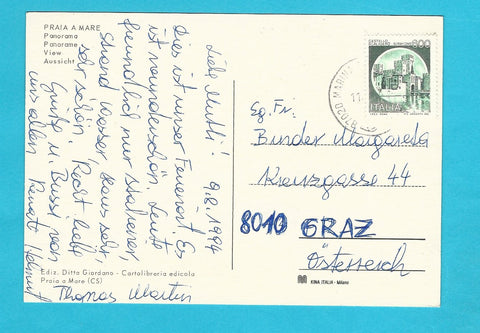 PRAIA A MARE
Panorama
Panorame
View
Aussicht
Liebe Mutti! 9.8.1994
Dies ist unser Ferienort! Es
ist traumhaft schön. Leute
freundlich nur Italiener,
Strand Wasser, Haus sehr,
sehr schön. Recht liebe
Grüße u. Bussi von
uns allen Renate Helmut
Thomas Martin
Ediz. Ditta Giordano - Cartolibreria edicola
Praia a Mare (CS)
800
ITALIA
87020 MARINA
11
Eg. Fr.
Binder Margareta
Kreuzgasse 44
8010 GRAZ
Österreich
KINA ITALIA - Milano